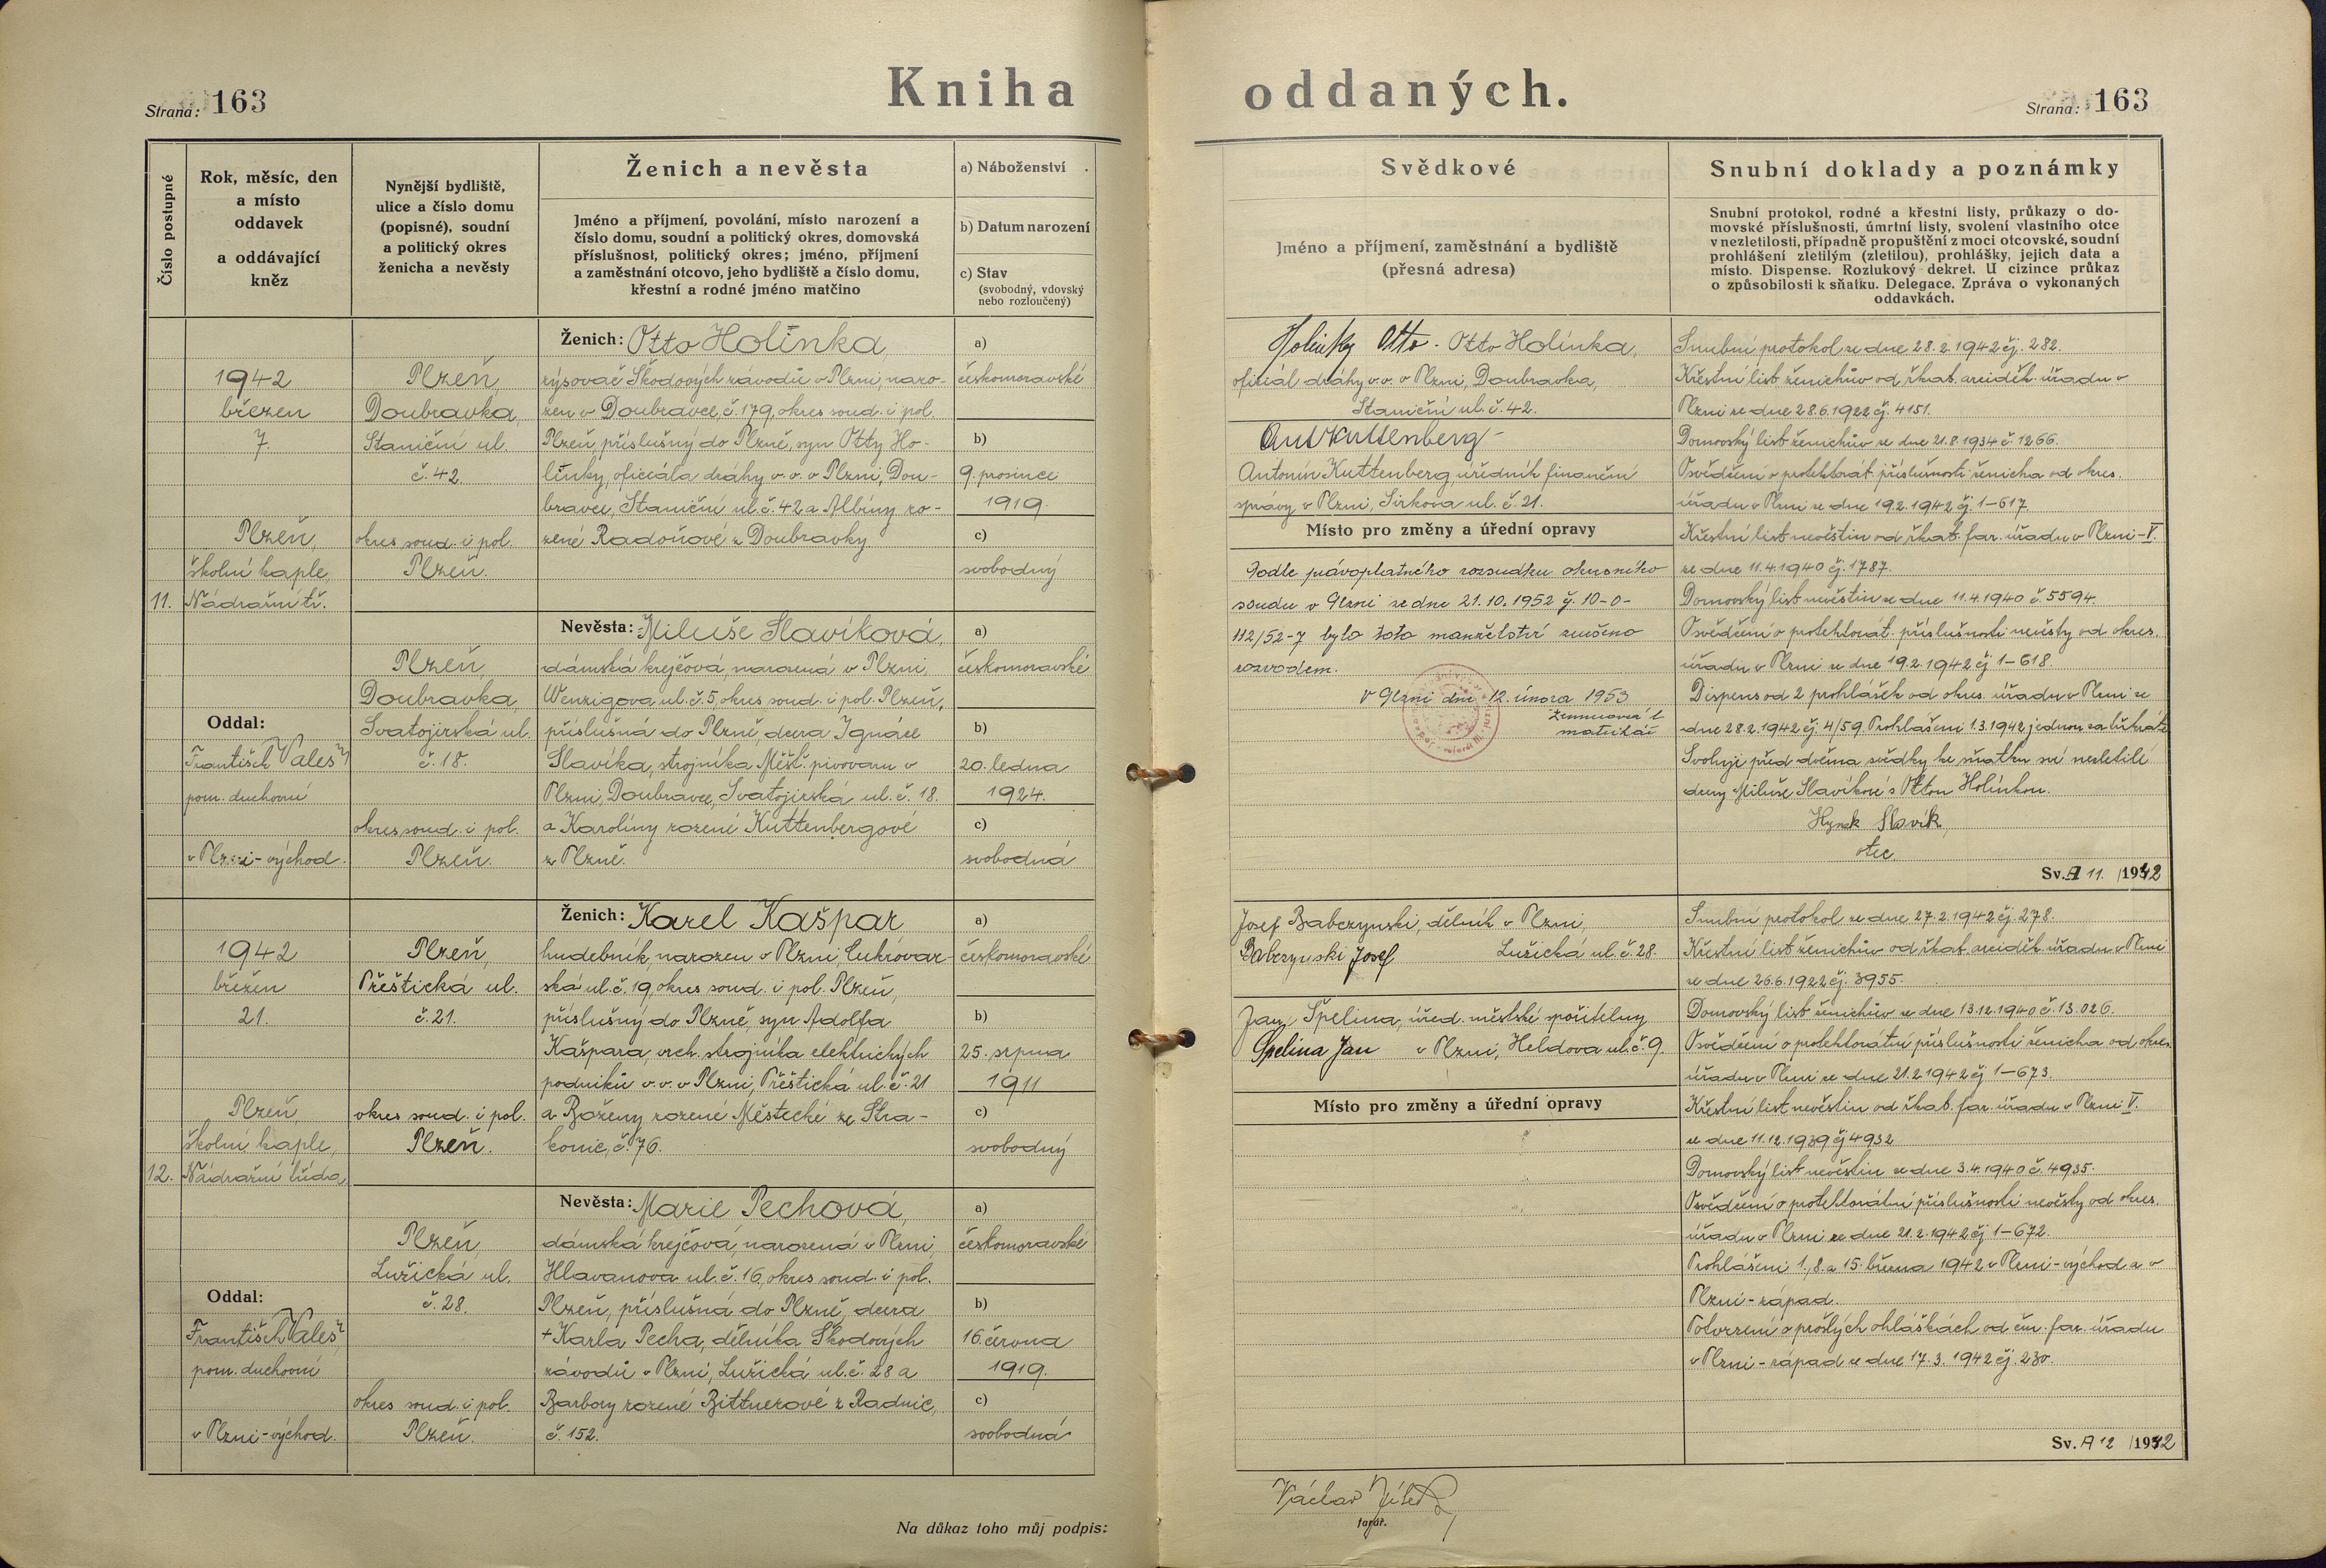 Strana: 163
Kniha oddaných.
Strana: 163
Číslo postupné
Rok, měsíc, den
a místo
oddavek
a oddávající
kněz
Nynější bydliště,
ulice a číslo domu
(popisné), soudní
a politický okres
ženicha a nevěsty
Ženich a nevěsta
Jméno a příjmení, povolání, místo narození a
číslo domu, soudní a politický okres, domovská
příslušnost, politický okres; jméno, příjmení
a zaměstnání otcovo, jeho bydliště a číslo domu,
křestní a rodné jméno matčino
a) Náboženství
b) Datum narození
c) Stav
(svobodný, vdovský
nebo rozloučený)
Svědkové
Jméno a příjmení, zaměstnání a bydliště
(přesná adresa)
Snubní doklady a poznámky
Snubní protokol, rodné a křestní listy, průkazy o do-
movské příslušnosti, úmrtní listy, svolení vlastního otce
v nezletilosti, případně propuštění z moci otcovské, soudní
prohlášení zletilým (zletilou), prohlášky, jejich data a
místo. Dispense. Rozlukový dekret. U cizince průkaz
o způsobilosti k sňatku. Delegace. Zpráva o vykonaných
oddavkách.
11.
1942
březen
7.
Plzeň,
školní kaple,
Nádražní tř.
Oddal:
František Valeš
pom. duchovní
v Plzni-východ.
Plzeň,
Doubravka,
Staniční ul.
č. 42.
okres soud. i pol.
Plzeň.
Ženich: Otto Holinka,
rýsovač Škodových závodů v Plzni, naro-
zen v Doubravce, č. 179, okres soud. i pol.
Plzeň, příslušný do Plzně, syn Otty Ho-
linky, oficiála dráhy v. v. v Plzni, Dou-
bravce, Staniční ul. č. 42 a Albíny ro-
zené Radoňové z Doubravky.
a)
českomoravské
b)
9. prosince
1919.
c)
svobodný
Plzeň,
Doubravka,
Svatojirská ul.
č. 18.
okres soud. i pol.
Plzeň.
Nevěsta: Miluše Slavíková,
dámská krejčová, narozená v Plzni,
Wenzigova ul. č. 5, okres soud. i pol. Plzeň,
příslušná do Plzně, dcera Ignáce
Slavíka, strojníka Měšť. pivovaru v
Plzni, Doubravce, Svatojirská ul. č. 18.
a Karolíny rozené Kuttenbergové
z Plzně.
a)
českomoravské
b)
20. ledna
1924.
c)
svobodná
Holinka Otto. Otto Holinka,
oficiál dráhy v. v. v Plzni, Doubravka,
Staniční ul. č. 42.
Ant Kuttenberg
Antonín Kuttenberg, úředník finanční
správy v Plzni, Sirkova ul. č. 21.
Místo pro změny a úřední opravy
Podle právoplatného rozsudku okresního
soudu v Plzni ze dne 21.10.1952 čj. 10-0-
112/52-7 bylo toto manželství zrušeno
rozvodem.
V Plzni dne 12. února 1953
matrikář
Snubní protokol ze dne 28.2.1942 čj. 282.
Křestní list ženichův od řkat. arciděk. úřadu v
Plzni ze dne 28.6.1922 čj. 4151.
Domovský list ženichův ze dne 21.8.1934 č. 1266.
Osvědčení o protektorát. příslušnosti ženicha od okres.
úřadu v Plzni ze dne 19.2.1942 čj. 1-617.
Křestní list nevěstin od řkat. far. úřadu v Plzni-V.
ze dne 11.4.1940 čj. 1787.
Domovský list nevěstin ze dne 11.4.1940 č. 5594.
Osvědčení o protektorát. příslušnosti nevěsty od okres.
úřadu v Plzni ze dne 19.2.1942 čj 1-618.
Dispens od 2 prohlášek od okres. úřadu v Plzni ze
dne 28.2.1942 čj. 4/59. Prohlášeni 1.3.1942 jednou za třikráte
Svoluji před dvěma svědky ke sňatku své nezletilé
dcery Miluše Slavíkové s Ottou Holinkou.
Hynek Slavík,
otec.
Sv. A 11. /1942
12.
1942
březen
21.
Plzeň,
školní kaple,
Nádražní třída
Oddal:
František Valeš
pom. duchovní
v Plzni-východ.
Plzeň,
Přeštická ul.
č. 21.
okres soud. i pol.
Plzeň.
Ženich: Karel Kašpar
hudebník, narozen v Plzni, Cukrovar-
ská ul. č. 19, okres soud. i pol. Plzeň,
příslušný do Plzně, syn Adolfa
Kašpara, vrch. strojníka elektrických
podniků v. v. v Plzni, Přeštická ul. č. 21
a Boženy rozené Městecké ze Stra-
konic, č. 76.
a)
českomoravské
b)
25. srpna
1911
c)
svobodný
Plzeň,
Lužická ul.
č. 28.
okres soud. i pol.
Plzeň.
Nevěsta: Marie Pechová,
dámská krejčová, narozená v Plzni,
Hlavanova ul. č. 16, okres soud. i pol.
Plzeň, příslušná do Plzně, dcera
+ Karla Pecha, dělníka Škodových
závodů v Plzni, Lužická ul. č. 28 a
Barbory rozené Bittnerové z Radnic,
č. 152.
a)
českomoravské
b)
16. června
1919.
c)
svobodná
Josef Babczynski, dělník v Plzni,
Babczynski Josef Lužická ul. č. 28.
Jan Špelina, úřed. městské spořitelny
Špelina Jan v Plzni, Heldova ul. č. 9.
Místo pro změny a úřední opravy
Snubní protokol ze dne 27.2.1942 čj. 278.
Křestní list ženichův od řkat. arciděk. úřadu v Plzni
ze dne 26.6.1922 čj. 3955.
Domovský list ženichův ze dne 13.12.1940 č. 13.026.
Osvědčení o protektorátní příslušnosti ženicha od okres.
úřadu v Plzni ze dne 21.2.1942 čj 1-673.
Křestní list nevěstin od řkat. far. úřadu v Plzni V.
ze dne 11.12.1939 čj 4932
Domovský list nevěstin ze dne 3.4.1940 č. 4935.
Osvědčení o protektorátní příslušnosti nevěsty od okres.
úřadu v Plzni ze dne 21.2.1942 čj 1-672.
Prohlášeni 1., 8. a 15. března 1942 v Plzni-východ a v
Plzni-západ.
Potvrzení o prošlých ohláškách od čm. far. úřadu
v Plzni-západ ze dne 17.3.1942 čj. 230.
Sv. A 12 /1942
Na důkaz toho můj podpis:
Václav
farář.